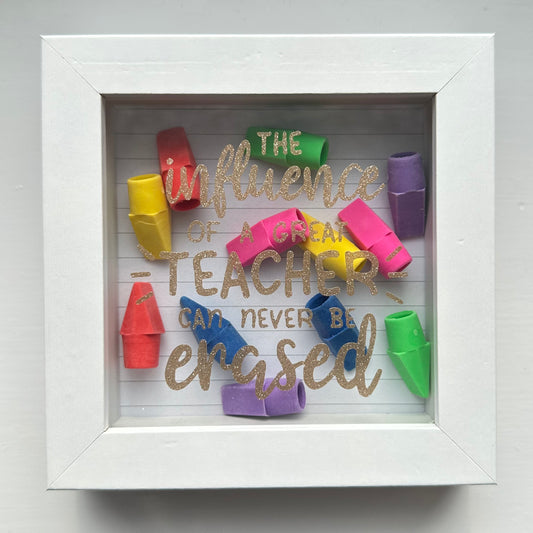 THE
influence
OF A GREAT
TEACHER
CAN NEVER BE
erased